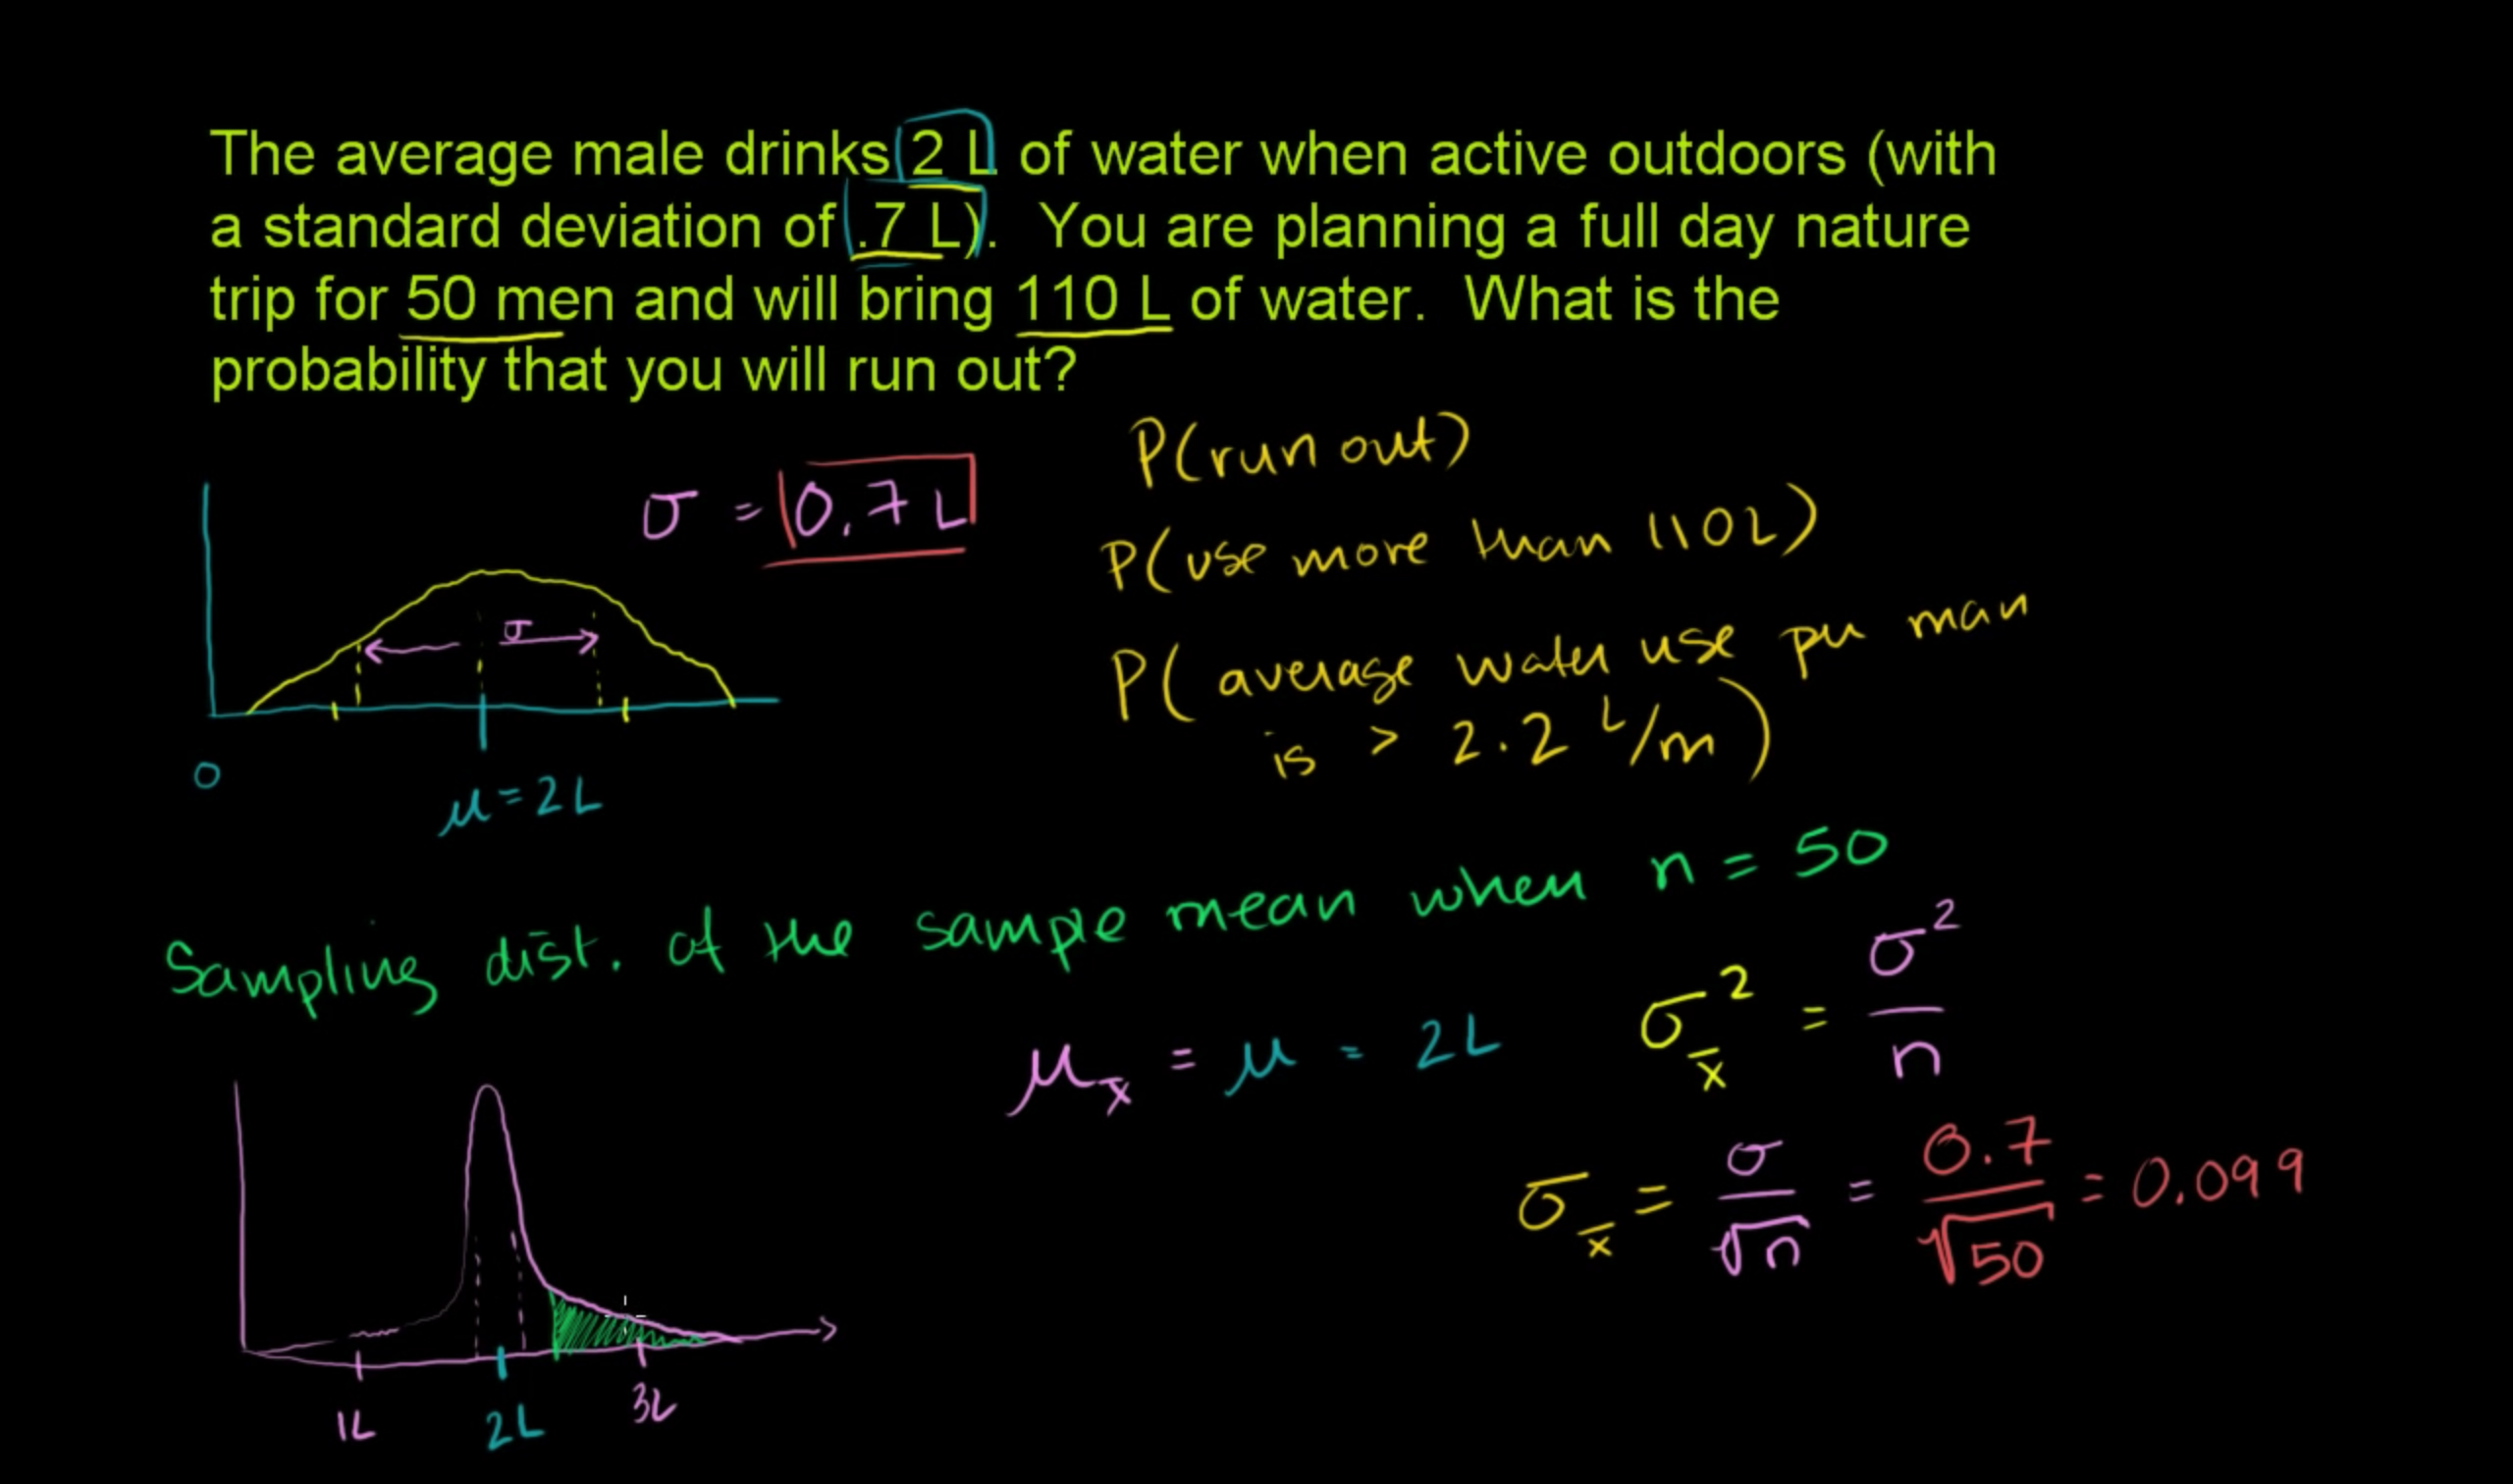 The average male drinks 2 L of water when active outdoors (with
a standard deviation of .7 L). You are planning a full day nature
trip for 50 men and will bring 110 L of water. What is the
probability that you will run out?
P(run out)
σ = 0.7 L
P(use more than 110L)
σ
P(average water use per man
is > 2.2 L/m)
0
μ = 2L
Sampling dist. of the sample mean when n = 50
μx̄ = μ = 2L
σx̄² = σ²/n
σx̄ = σ/√n = 0.7/√50 = 0.099
1L 2L 3L